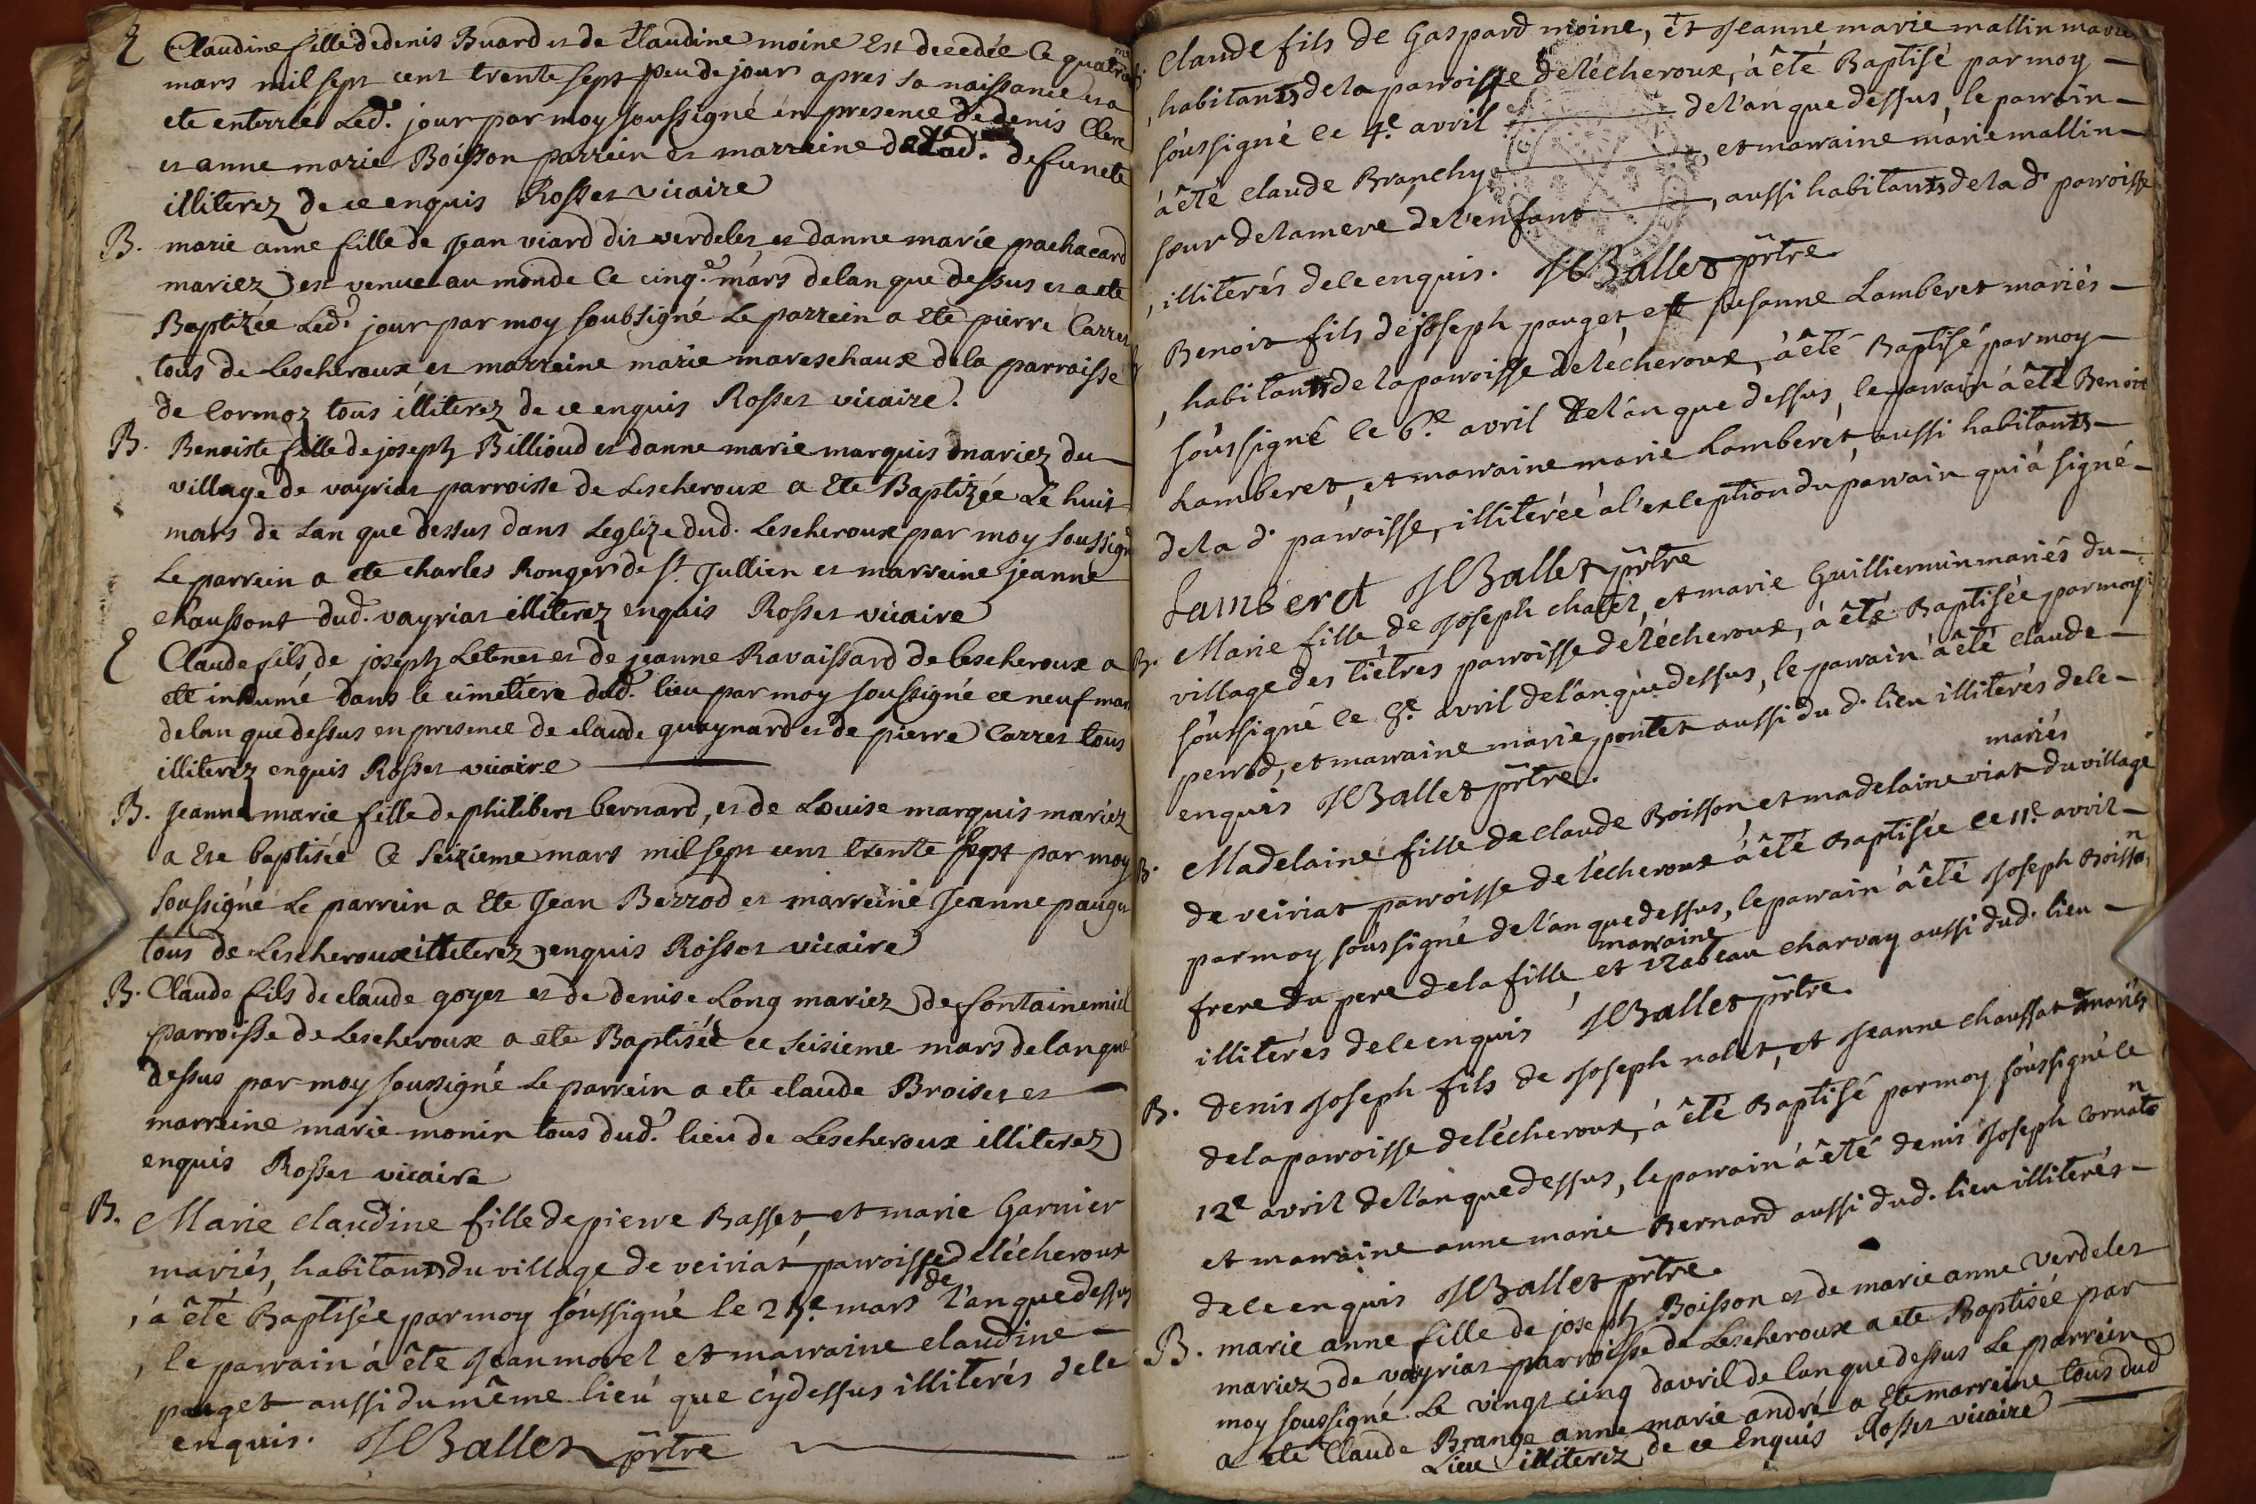 E Claudine fille de denis Buard et de Claudine moine Est decedée Ce quatre
mars mil sept cent trente sept peu de jour apres sa naissance et a
ete enterrée Led. jour par moy soussigné en presence de denis Clerc
et anne marie Boisson parrein et marreine de lad. defuncte
illiterez de ce enquis Rosset vicaire
B. marie anne fille de Jean viard dit verdelet et danne marie pachacard
mariez est venue au monde Ce cinq.e mars delan que dessus et a ete
Baptizée Led. jour par moy soubsigné Le parrein a Ete pierre Carret
tous de Lescheroux et marreine marie mareschaux dela parroisse
de Cormoz tous illiterez de ce enquis Rosset vicaire.
B. Benoiste fille de joseph Billioud et danne marie marquis mariez du
village de vayriat parroisse de Lescheroux a Ete Baptizée Le huit
mars de Lan que dessus dans Leglize dud. Lescheroux par moy soussigné
Le parrein a ete charles Ronger de St. Jullien et marreine jeanne
chaussont dud. vayriat illiterez enquis Rosset vicaire
E Claude fils de joseph Letenet et de jeanne Ravaissard de lescheroux a
ete inhumé dans le cimetiere dud. lieu par moy soussigné ce neuf mars
delan que dessus en presence de claude guaynard et de pierre Carret tous
illiterez enquis Rosset vicaire
B. Jeanne marie fille de philibert bernard, et de Louise marquis mariez
a Ete baptisée Ce seizieme mars mil sept cent trente sept par moy
soussigné Le parrein a Ete Jean Berrod et marreine Jeanne pauget
tous de Lescheroux illiterez enquis Rosset vicaire
B. Claude fils de claude goyet et de denise Long mariez de fontainemiel
parroisse de Lescheroux a ete Baptisée ce seisieme mars delan que
dessus par moy soussigné Le parrein a ete claude Broiset et
marreine marie monin tous dud. lieu de Lescheroux illiterez
enquis Rosset vicaire
B. Marie claudine fille de pierre Basset, et marie Garnier
mariés, habitants du village de veiriat, parroisse de lécheroux
, á êté Baptisée par moy soussigné le 25.e mars de l'an que dessus
, le parrain á êté Jean morel et marraine claudine
pauget aussi du même lieu que cydessus illiterés de ce
enquis. JBallet prtre
Claude fils de Gaspard moine, et Jeanne marie mallin mariés
, habitants de la parroisse de lécheroux, á êté Baptisé par moy
soussigné le 4.e avril de l'an que dessus, le parrain
á êté claude Branchy, et marraine marie mallin
sœur de la mere de l'enfant, aussi habitants de la d. parroisse
, illiterés de ce enquis. JBallet prtre
Benoit fils de joseph pauget et susanne Lamberet mariés
, habitants de la parroisse de lécheroux, á êté Baptisé par moy
soussigné le 6.e avril de l'an que dessus, le parrain á êté Benoit
Lamberet, et marraine marie Lamberet, aussi habitants
de la d. parroisse, illiterée á l'exception du parrain qui á signé
Lamberet JBallet prtre
B. Marie fille de Joseph chatel, et marie Guilliermin mariés du
village des tiétres parroisse de lécheroux, á êté Baptisée par moy
soussigné le 9.e avril de l'an que dessus, le parrain á êté claude
perrod, et marraine marie pontet aussi du d. lieu illiterés de ce
enquis JBallet prtre.
mariés
B. Madelaine fille de claude Boisson et madelaine viat du village
de veiriat parroisse de lécheroux á êté Baptisée le 11.e avril
par moy soussigné de l'an que dessus, le parrain á êté Joseph Boisson
frere du pere de la fille, et marraine izabeau charvay aussi dud. lieu
illiterés de ce enquis JBallet prtre.
B. denis Joseph fils de Joseph nalet, et Jeanne chaussat mariés
de la parroisse de lécheroux, á êté Baptisé par moy soussigné le
12e avril de l'an que dessus, le parrain á êté denis Joseph Cornaton
et marraine anne marie Bernard aussi dud. lieu illiterés
de ce enquis JBallet prtre.
B. marie anne fille de joseph Boisson et de marie anne verdelet
mariez de vayriat parroisse de Lescheroux a ete Baptisée par
moy soussigné Le vingt cinq davril de lan que dessus Le parrein
a ete Claude Brange anne marie andré a Ete marreine tous dud
Lieu illiterez de ce Enquis Rosset vicaire